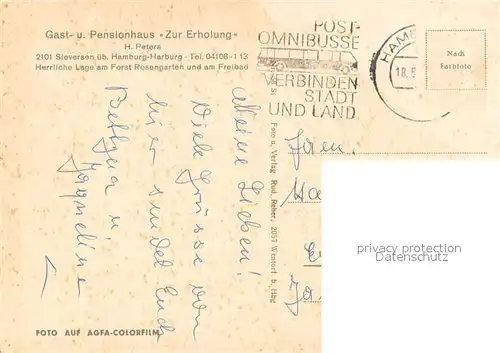 Gast- u. Pensionhaus »Zur Erholung«
H. Peters
2101 Sieversen üb. Hamburg-Harburg · Tel. 04108-113
Herrliche Lage am Forst Rosengarten und am Freibad
POST-
OMNIBUSSE
VERBINDEN
STADT
UND LAND
HAMB
18.
Nach
Farbfoto
Meine Lieben!
Viele Grüsse von
hier sendet Euch
Bettina u.
Foto u. Verlag Rud. Reher, 2057 Wentorf b. Hbg
privacy protection
Datenschutz
FOTO AUF AGFA-COLORFILM